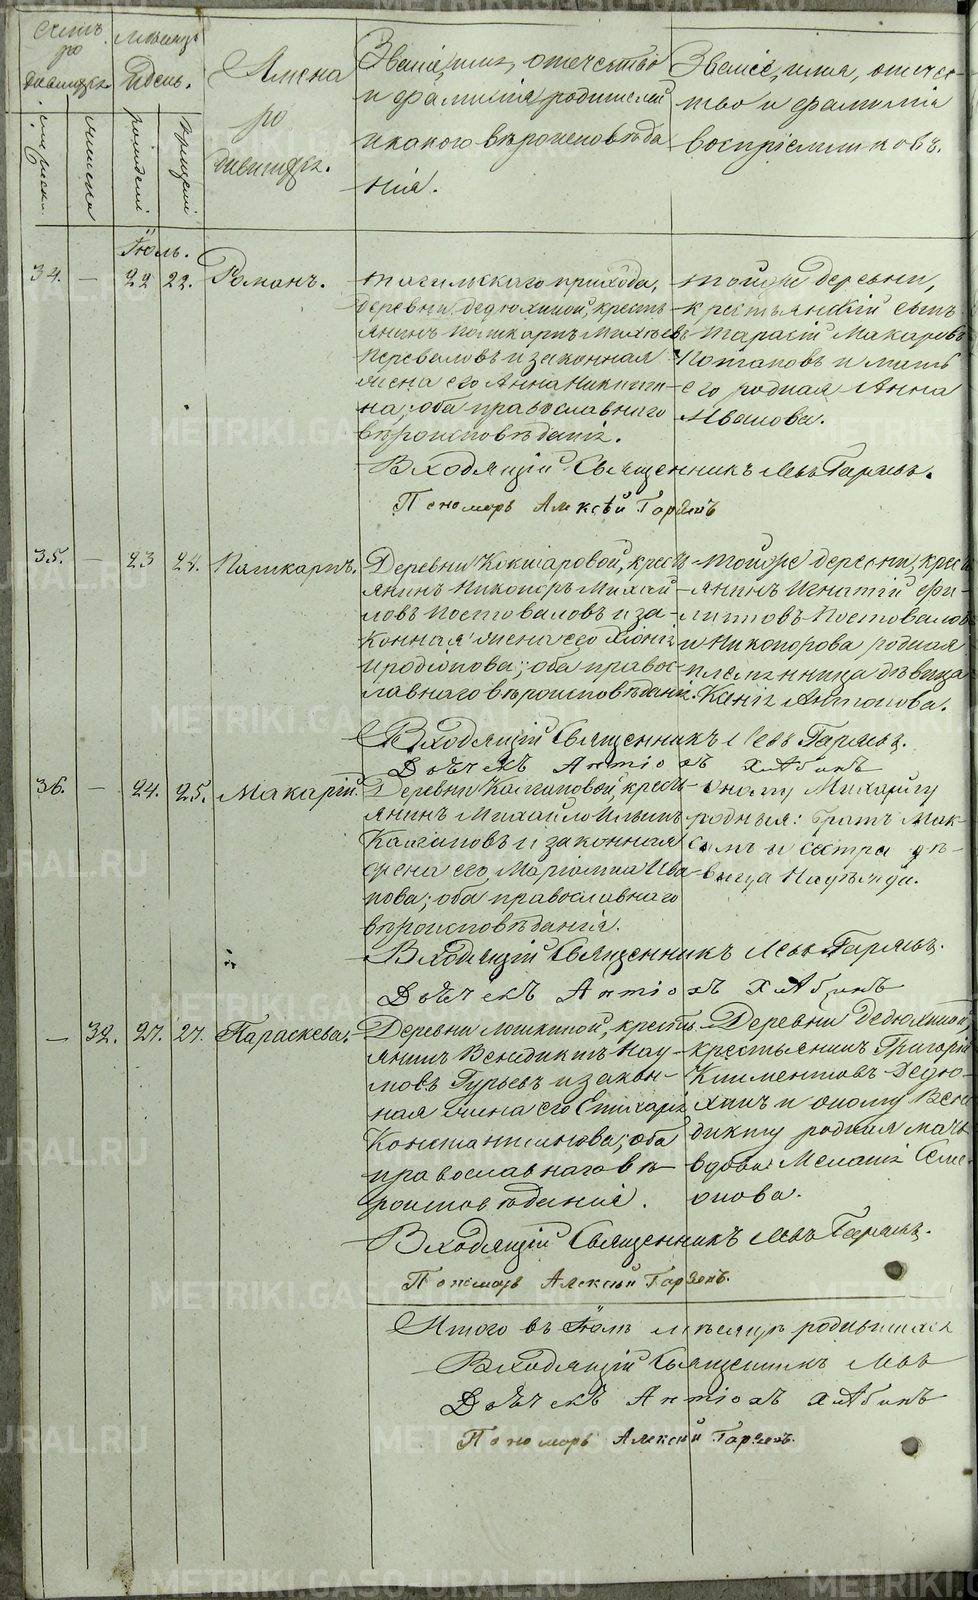 Счетъ
ро
дившихся.
мужеска.
женска
Мѣсяцъ
и день.
рожденiя
крещенiя
Имена
ро
дившихся.
Званiе, имя, отечество
и фамилiя родителей
и какого вѣроисповѣда
нiя.
Званiе, имя, отече-
ство и фамилiя
воспрiемниковъ.
Iюль.
34. — 22 22. Романъ.
тагильскаго прихода,
деревни Дедюхиной, кресть
янинъ Панкратъ Михѣевъ
Переваловъ и законная
жена его Анна Никити-
на; оба православнаго
вѣроисповѣданiя.
тойже деревни,
крестьянскiй сынъ
Тарасiй Макаровъ
Потаповъ и мать
его родная Анна
Иванова.
Входящiй Священникъ Левъ Гаряевъ.
Пономарь Алексѣй Гаряевъ
35. — 23 24. Панкратъ.
Деревни Кокшаровой, крест
янинъ Никаноръ Михай
ловъ Постоваловъ и за-
конная жена его
Иродiонова; оба правос-
лавнаго вѣроисповѣданiя.
Тойже деревни, крест
янинъ Игнатiй Фи-
липповъ Постоваловъ
и Никанорова родная
племянница дѣвица
Ксенiя Антонова.
Входящiй Священникъ Левъ Гаряевъ.
Дьячекъ Антiохъ Хлябинъ
36. — 24. 25. Макарiй.
Деревни Калгановой, крест-
янинъ Михайло Ильинъ
Калгановъ и законная
жена его, Марiамна Ива
нова; оба православнаго
вѣроисповѣданiя.
Оному Михаилу
родныя: братъ Мак-
симъ и сестра дѣ-
вица Надежда.
Входящiй Священникъ Левъ Гаряевъ.
Дьячекъ Антiохъ Хлябинъ
— 32. 27. 27. Параскева.
Деревни Лопкиной, кресть
янинъ Венедиктъ Нау-
мовъ Гурьевъ и закон-
ная жена его Епихарiя
Константинова; оба
православнаго вѣ-
роисповѣданiя.
Деревни Дедюхиной,
крестьянинъ Григорiй
Климентовъ Дедю-
хинъ и оному Вене
дикту родная мать
вдова Меланiя Семе
онова.
Входящiй Священникъ Левъ Гаряевъ.
Пономарь Алексѣй Гаряевъ.
Итого въ Iюлѣ мѣсяцѣ родившихся
Входящiй Священникъ Левъ
Дьячекъ Антiохъ Хлябинъ
Пономарь Алексѣй Гаряевъ.